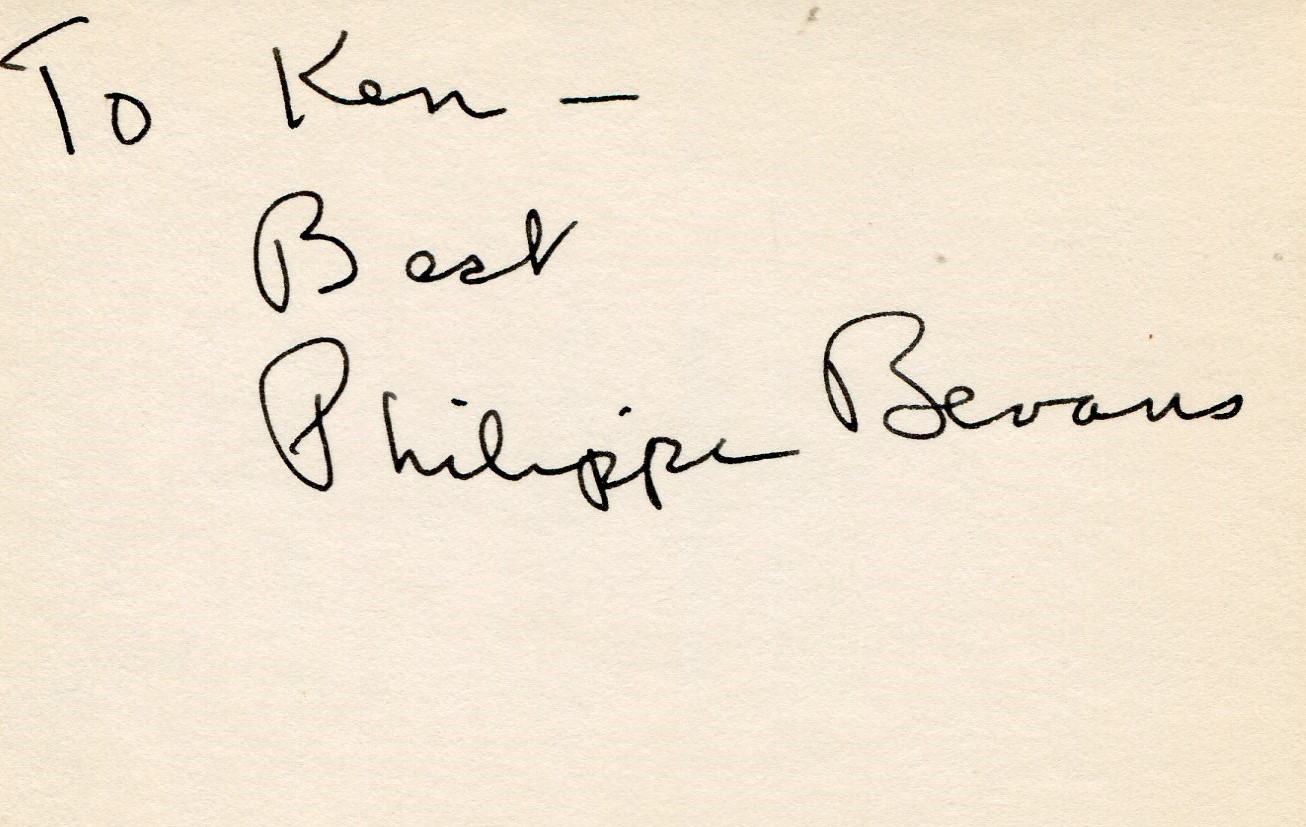 To Ken —
Best
Philippa Bevans